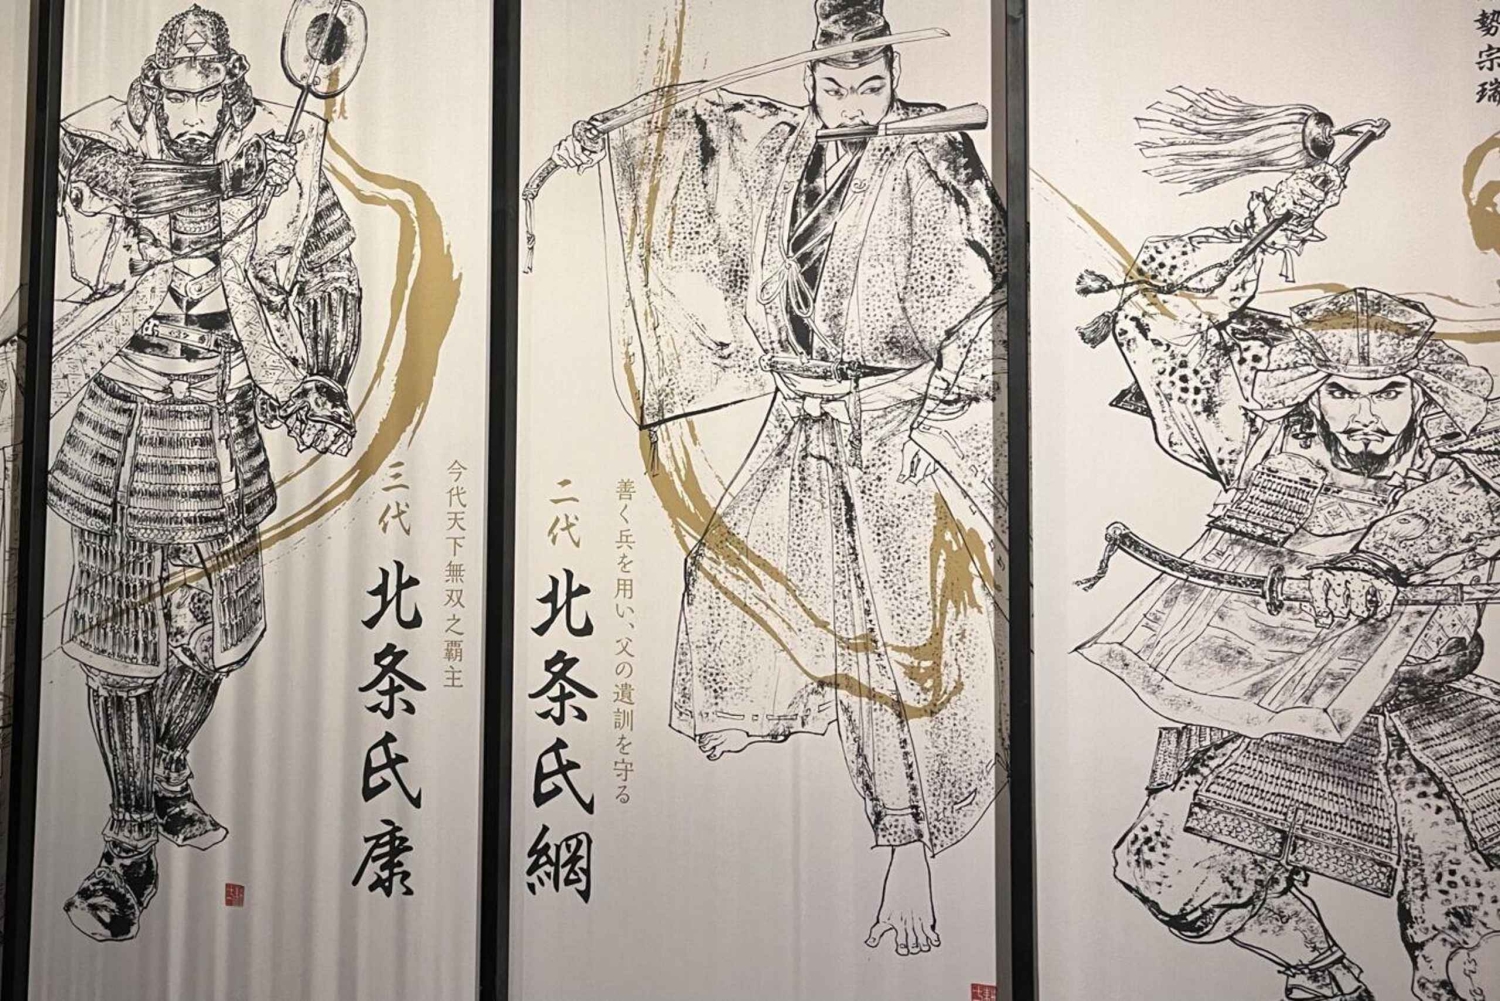 勢宗瑞
善く兵を用い、父の遺訓を守る
二代
北条氏綱
今代天下無双之覇主
三代
北条氏康